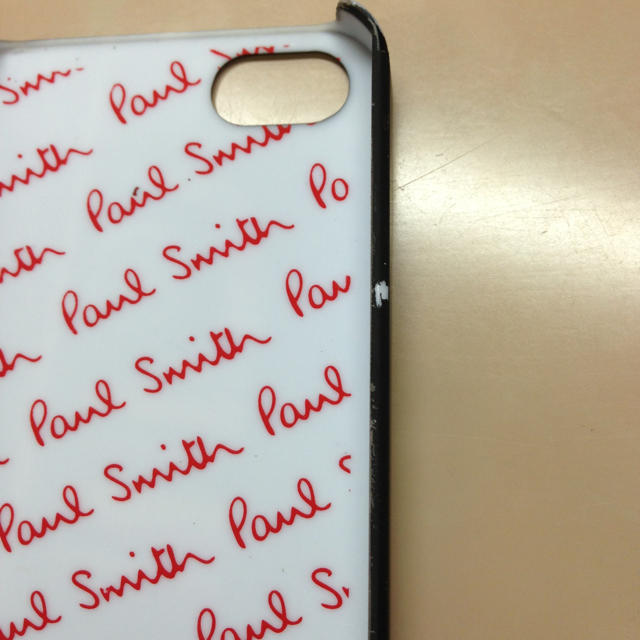 Paul Smith
Smith Paul Smith
Smith Paul Smith Pa
Smith Paul Smith Pau
Paul Smith Paul
Paul Smith Paul S
Paul Smith Paul S